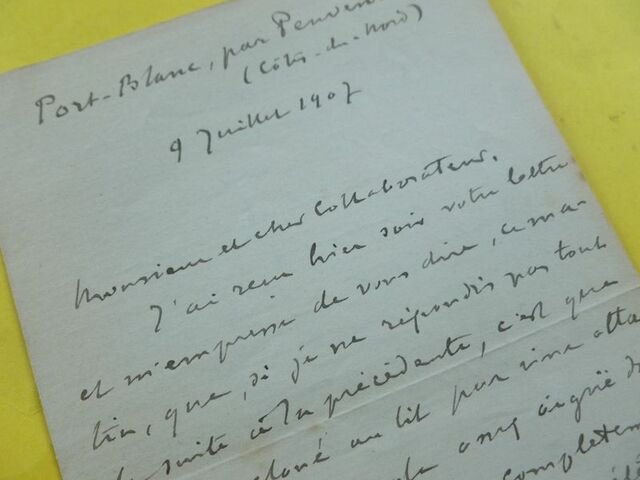 Port-Blanc, par Penven
(Côtes-du-Nord)
9 Juillet 1907
Monsieur et cher Collaborateur,
J'ai reçu hier soir votre lettre
et m'empresse de vous dire, ce ma-
tin, que, si je ne répondis pas tout
de suite à la précédente, c'est que
cloué au lit par une atta
assez aiguë d
complètem